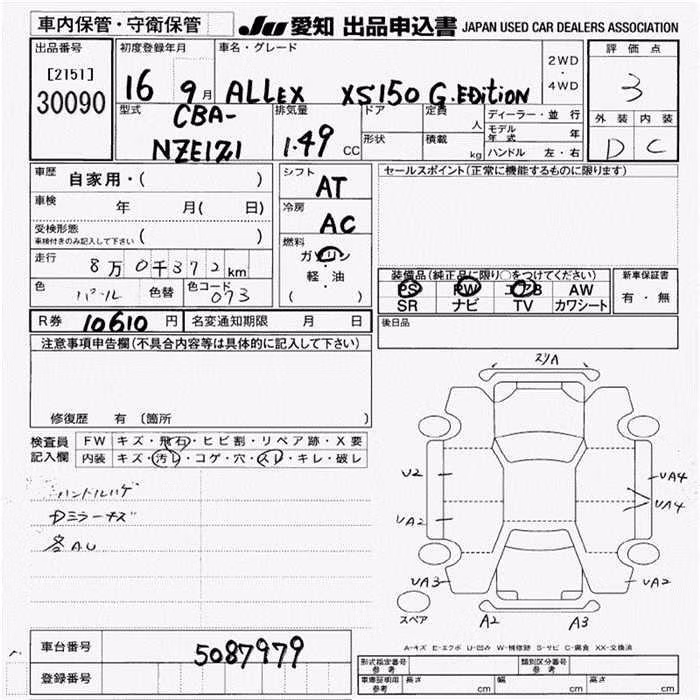 車内保管・守衛保管
JU 愛知 出品申込書 JAPAN USED CAR DEALERS ASSOCIATION
出品番号 初度登録年月 車名・グレード 2WD・4WD 評価点
[2151]
30090 16 9月 ALLEX XS150 G.EDiTiON 3
型式 排気量 ドア 定員 人 ディーラー・並行 外装 内装
CBA-
NZE121 1.49 CC 形状 積載 kg モデル年式 年 D C
ハンドル 左・右
車歴 自家用・( ) シフト AT セールスポイント(正常に機能するものに限ります)
車検 年 月( 日) 冷房 AC
受検形態 ( )
車検付きのみ記入して下さい
燃料 ガソリン
走行 8万0千372km 軽・油
( )
装備品(純正品に限り○をつけてください) 新車保証書
色 パール 色替 色コード 073 PS PW エアB AW 有・無
SR ナビ TV カワシート
R券 10610 円 名変通知期限 月 日 後日品
注意事項申告欄(不具合内容等は具体的に記入して下さい)
修復歴 有 〔箇所 〕
検査員 FW キズ・飛石・ヒビ割・リペア跡・X要
記入欄 内装 キズ・汚レ・コゲ・穴・スレ・キレ・破レ
ハンドルハゲ
Dミラーキズ
冬AU
スリA
U2
UA2
UA3
UA4
UA4
UA2
スペア
A2 A3
A-キズ E-エクボ U-凹み W-補修跡 S-サビ C-腐食 XX-交換済
車台番号 5087979
登録番号
形式指定番号 参考 類別区分番号 参考
車庫証明用 参考 長さ cm 幅 cm 高さ cm